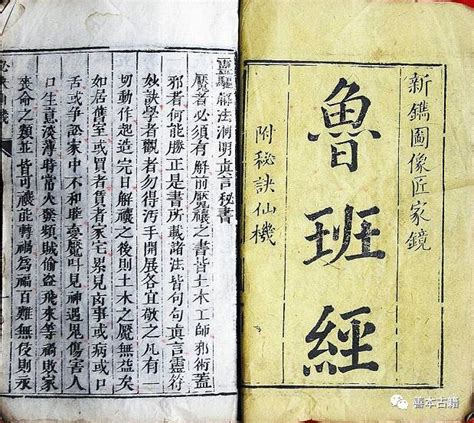 新鐫圖像匠家鏡
魯班經
附秘訣仙機
靈驅解法洞明真言秘書
魘者必須有解前魘禳之書皆土木工師邪術蓋
邪者何能勝正是書所載諸法皆句句真言靈符
妙訣學者觀者勿得污手開展各宜敬之凡有一
切動作起造完日解禳之後則土木之魘無益矣
如居舊室或買者賃者家宅累見凶事或病或口
舌或爭訟家中不和睡臺魘叶見神遇鬼傷害人
口生意淡薄時當火發頻賊偷盜飛來等禍敗家
喪命之類並皆可禳能轉禍為福百難無侵則永
善本古籍